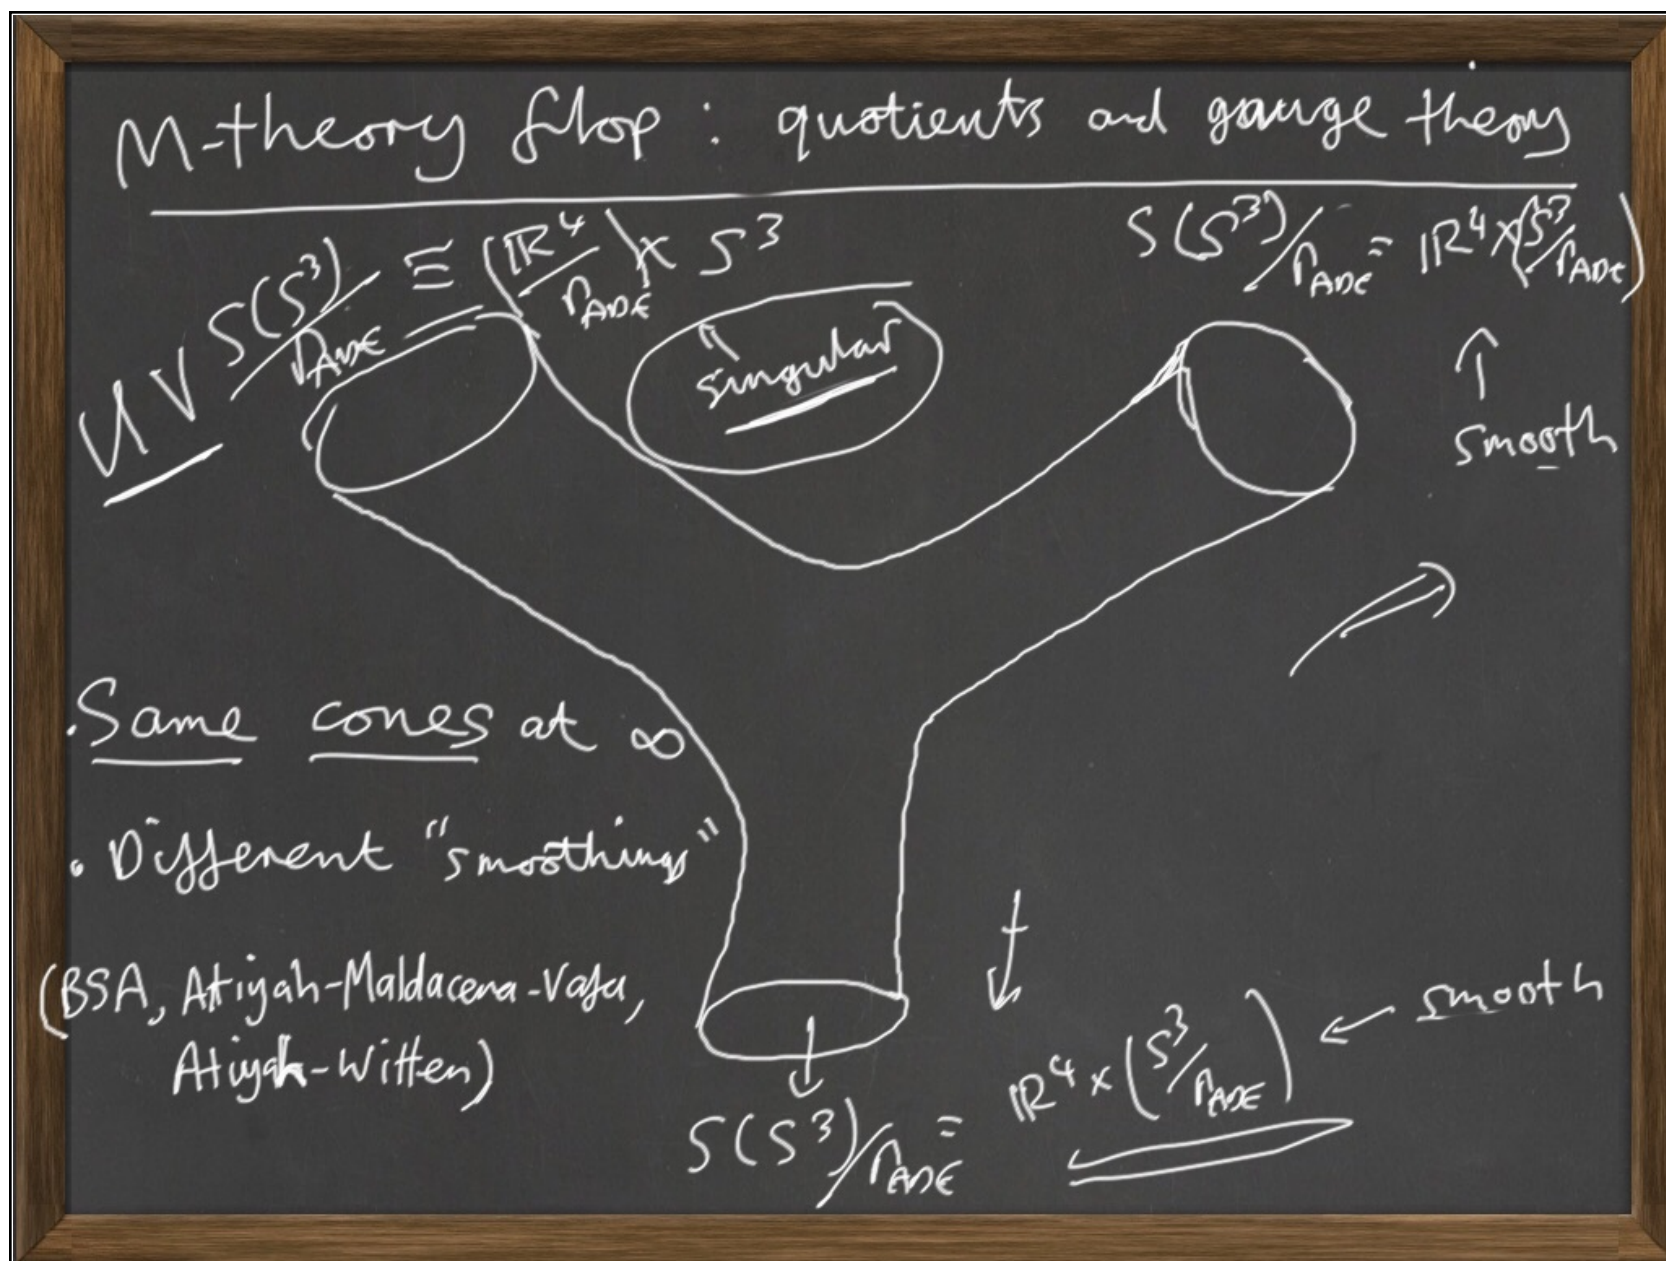 M-theory flop : quotients and gauge theory
UV S(S³)/Γ_ADE ≡ (ℝ⁴/Γ_ADE) × S³
↑
singular
S(S³)/Γ_ADE = ℝ⁴ × (S³/Γ_ADE)
↑
smooth
· Same cones at ∞
· Different "smoothings"
(BSA, Atiyah-Maldacena-Vafa,
Atiyah-Witten)
S(S³)/Γ_ADE = ℝ⁴ × (S³/Γ_ADE) ← smooth